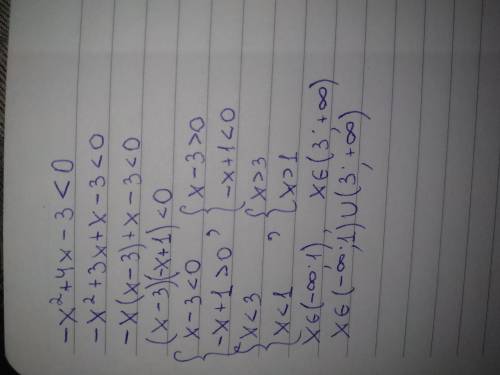 -x²+4x-3<0
-x²+3x+x-3<0
-x(x-3)+x-3<0
(x-3)(-x+1)<0
{x-3<0 {x-3>0
{-x+1>0, {-x+1<0
{x<3 {x>3
{x<1, {x>1
x∈(-∞;1), x∈(3;+∞)
x∈(-∞;1)∪(3;+∞)